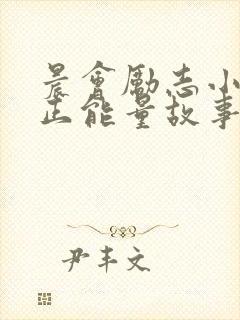 晨會勵志小
正能量故事
尹丰文